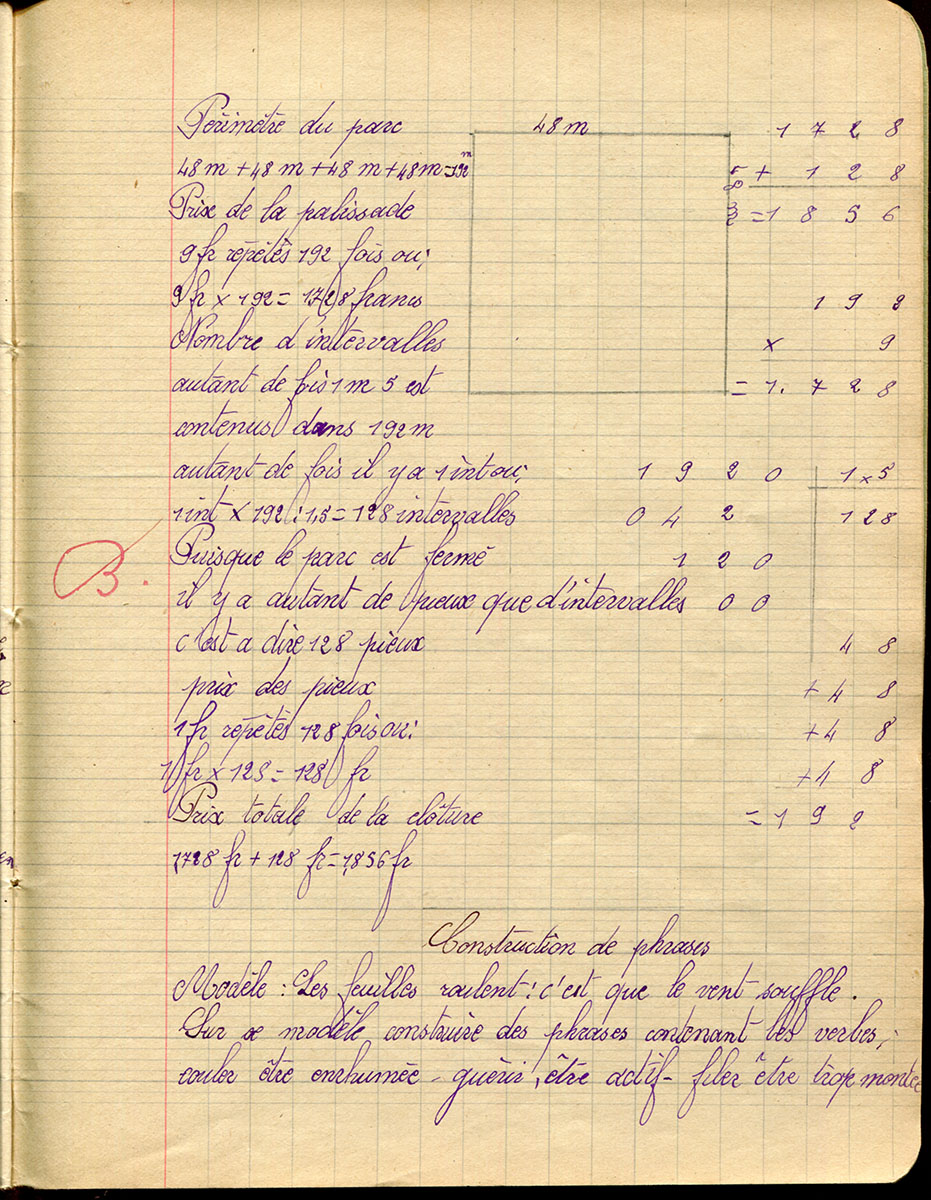 Périmètre du parc
48 m + 48 m + 48 m + 48 m = 192 m
Prix de la palissade
9 fr répétés 192 fois ou;
9 fr x 192 = 1728 francs
Nombre d'intervalles
autant de fois 1 m 5 est
contenus dans 192 m
autant de fois il y a 1 int ou;
1 int x 192 : 1,5 = 128 intervalles
Puisque le parc est fermé
il y a autant de pieux que d'intervalles
c'est a dire 128 pieux
prix des pieux
1 fr répétés 128 fois ou:
1 fr x 128 = 128 fr
Prix totale de la clôture
1728 fr + 128 fr = 1,856 fr
48 m
1 7 2 8
+ 1 2 8
= 1 8 5 6
1 9 2
x 9
= 1. 7 2 8
1 9 2 0 1 x 5
0 4 2 1 2 8
1 2 0
0 0
4 8
+ 4 8
+ 4 8
+ 4 8
= 1 9 2
B.
Construction de phrases
Modèle : Les feuilles roulent : c'est que le vent souffle.
Sur ce modèle construire des phrases contenant les verbes;
couler être enrhumée - guérir, être actif - filer être trop montée